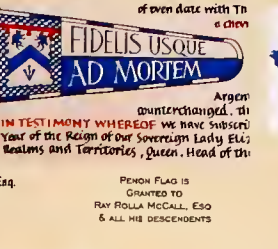 of even date with
a chev
FIDELIS USQUE
AD MORTEM
Argen
ounterchanged. th
IN TESTIMONY WHEREOF we have Subscri
Year of the Reign of our Sovereign Lady Eliz
Realms and Territories, Queen. Head of th
Esq.
PENON FLAG IS
GRANTED TO
RAY ROLLA MCCALL, ESQ
& ALL HIS DESCENDENTS